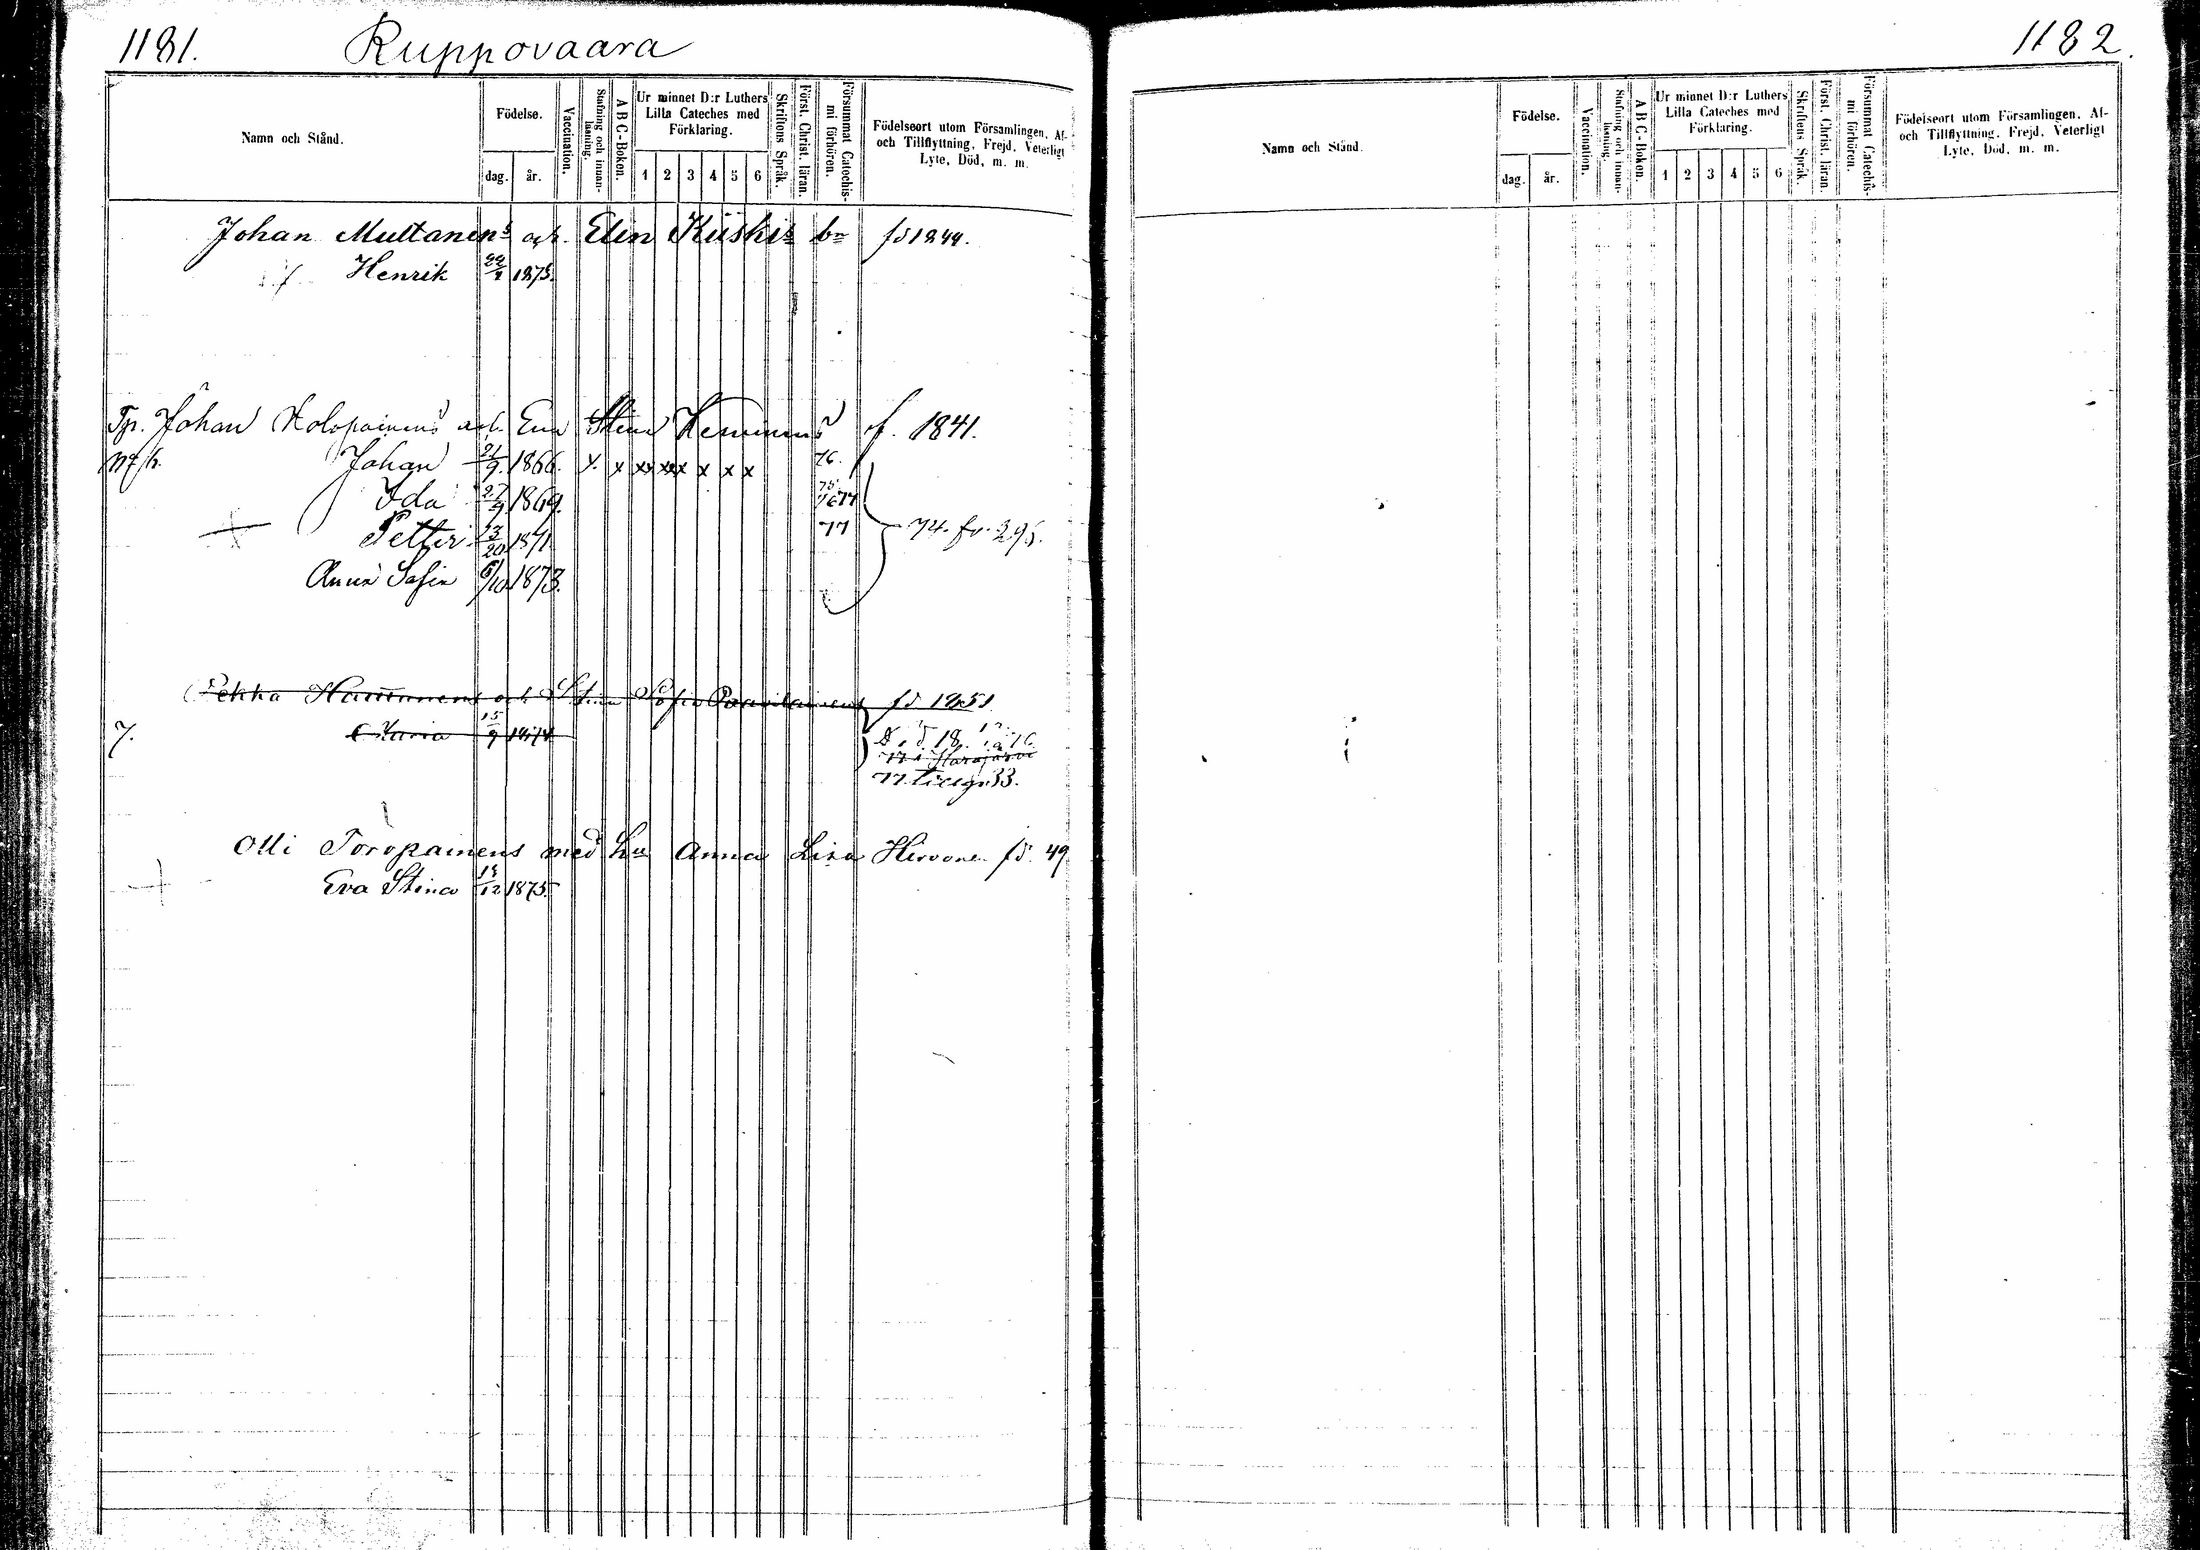 1181. Ruppovaara
Namn och Stånd.
Födelse.
dag. år.
Vaccination.
Stafning och innanläsning.
ABC-Boken.
Ur minnet D:r Luthers
Lilla Cateches med
Förklaring.
1 2 3 4 5 6
Skriftens Språk.
Först. Christ. läran.
Försummat Catechismi förhören.
Födelseort utom Församlingen, Af-
och Tillflyttning, Frejd, Veterligt
Lyte, Död, m. m.
Johan Multanens och Elin Kiiskis bn fd 1844.
Henrik 1875.
Tp. Johan Holopainens och Eva Stina f. 1841.
Johan 21/9 1866. x x x x x 76.
Ida 27/9 1869. 75. 76 77
Petter 13/20 1871 77 74. fr. 295.
Anna Sofia 6/10 1873.
Pekka och Stina Sofia fd 1851
7. Maria 15/9 1874
77. 33.
Olli Toropainens med hu Anna Lisa Hirvonen fd. 49
Eva Stina 12 1875.
1182.
Namn och Stånd.
Födelse.
dag. år.
Vaccination.
Stafning och innanläsning.
ABC-Boken.
Ur minnet D:r Luthers
Lilla Cateches med
Förklaring.
1 2 3 4 5 6
Skriftens Språk.
Först. Christ. läran.
Försummat Catechismi förhören.
Födelseort utom Församlingen, Af-
och Tillflyttning, Frejd, Veterligt
Lyte, Död, m. m.